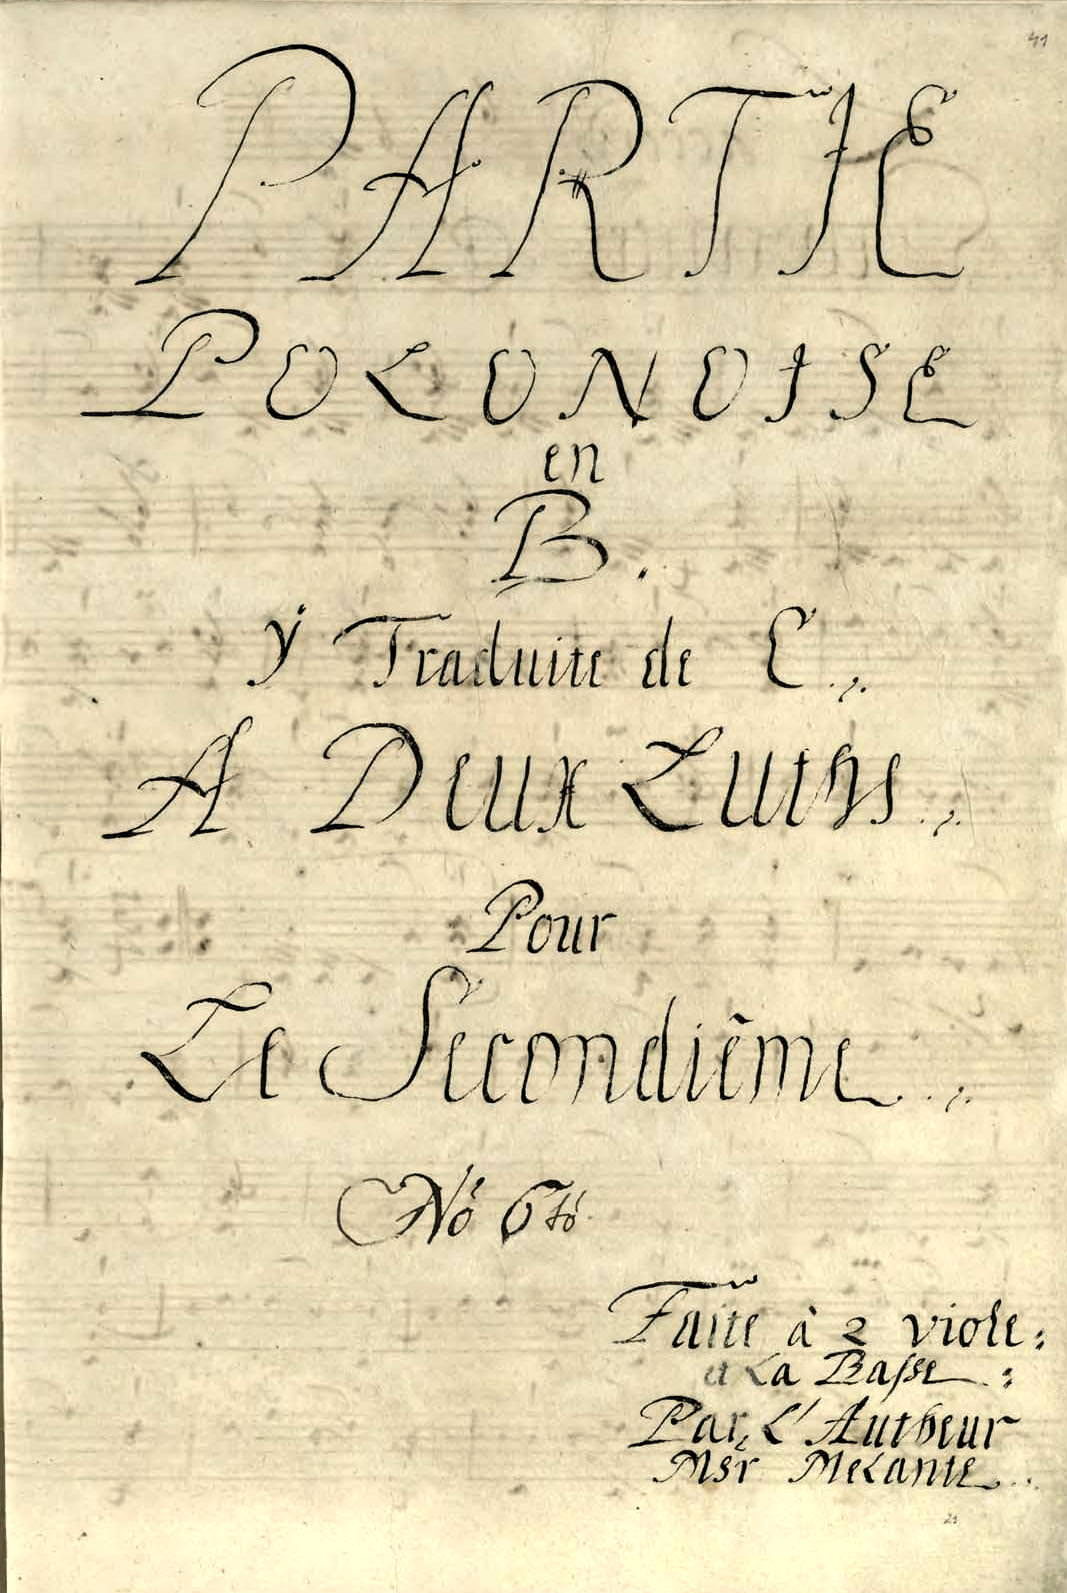 41
PARTIE
POLONOISE
en
B.
ÿ Traduite de C.,.
A Deux Luths.,.
Pour
Le Secondiême.,.
No 6to
Faite à 2 viole:
et La Basse:
Par L'Autheur
Msr Melante.
21